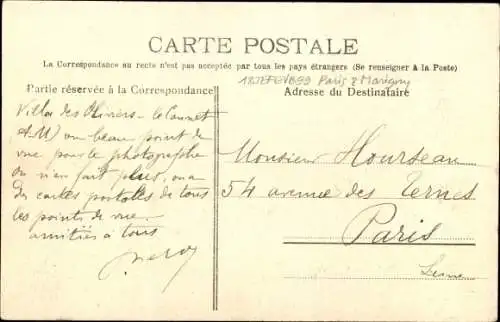 CARTE POSTALE
La Correspondance au recto n'est pas acceptée par tous les pays étrangers (Se renseigner à la Poste)
Paris 7 Marigny
Partie réservée à la Correspondance
Adresse du Destinataire
Villa des Oliviers - le Cannet
A-M) un beau point de
vue pour le photographe
on n'en fait plus, on a
des cartes postales de tous
les points de vue.
amitiés à tous
Monsieur Hourseau
54 avenue des Ternes
Paris
Seine